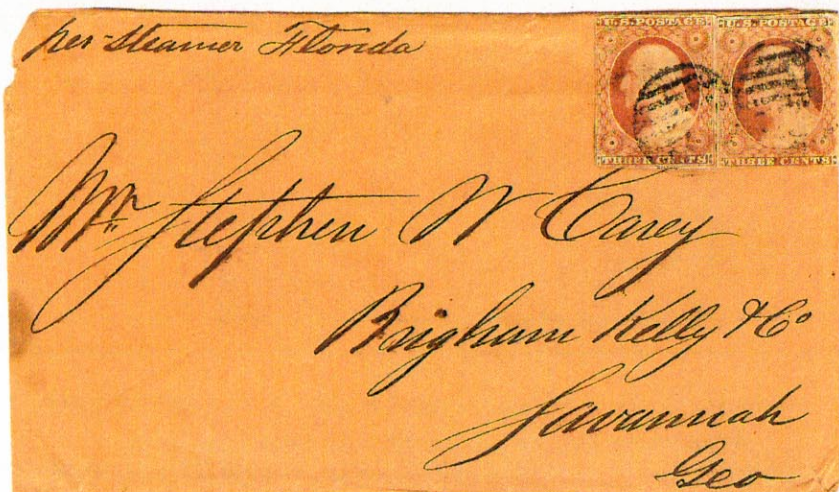 per Steamer Florida
U.S. POSTAGE
THREE CENTS
U.S. POSTAGE
THREE CENTS
Mr. Stephen W Carey
Brigham Kelly & Co
Savannah
Geo